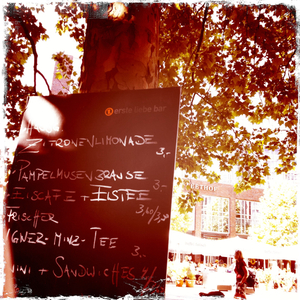 erste liebe bar
ZITRONENLIMONADE 3,-
PAMPELMUSENBRAUSE 3,-
EISCAFE + EISTEE
FRISCHER
INGWER-MINZ-TEE 3,-
MINI + SANDWICHES